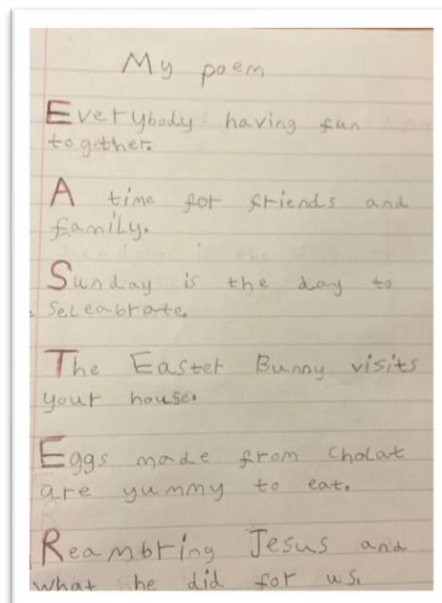 My poem
Everybody having fun
together.
A time for friends and
family.
Sunday is the day to
Seleabrate.
The Easter Bunny visits
your house.
Eggs made from Cholat
are yummy to eat.
Reambring Jesus and
what he did for us.